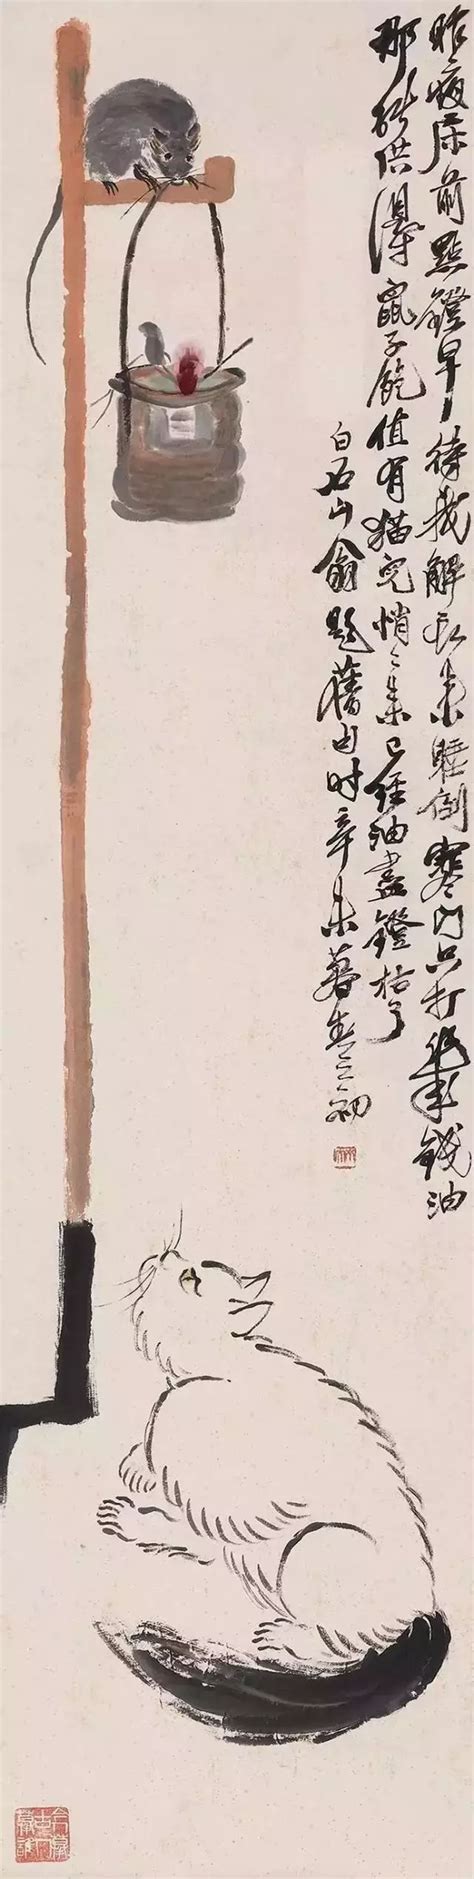 昨夜床前點鐙早待我解衣來睡倒寒門只打錢油
那能供得鼠子飽值有貓兒悄〻來已經油盡鐙枯了
白石山翁題舊句時辛未暮春之初